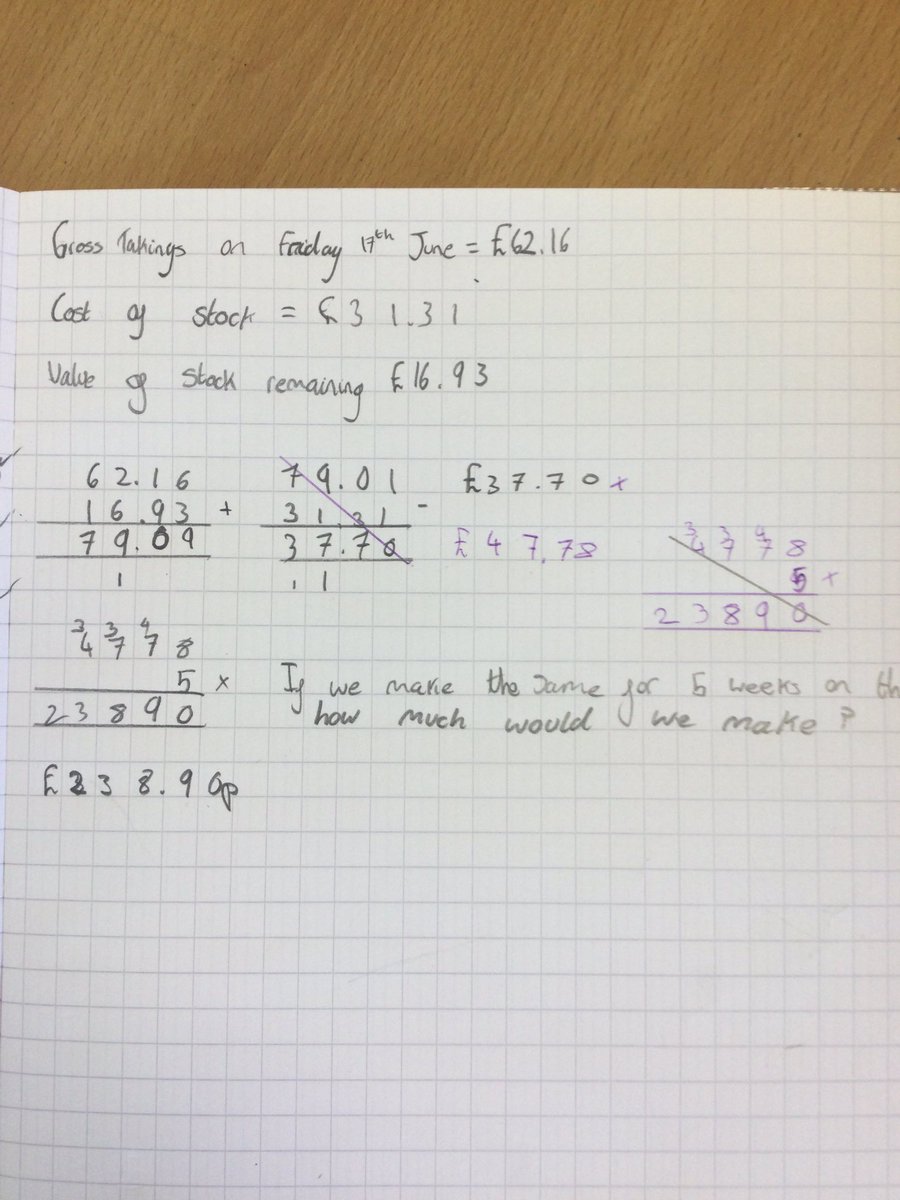 Gross Takings on Friday 17th June = £62.16
Cost of stock = £31.31
Value of stock remaining £16.93
62.16
16.93 +
79.09
1
79.01
31.31 -
37.70
1 1
£37.70 x
£47.78
3 3 4
4778
5 x
23890
3 3 4
4778
5 x
23890
If we make the same for 5 weeks on th
how much would we make?
£238.90p